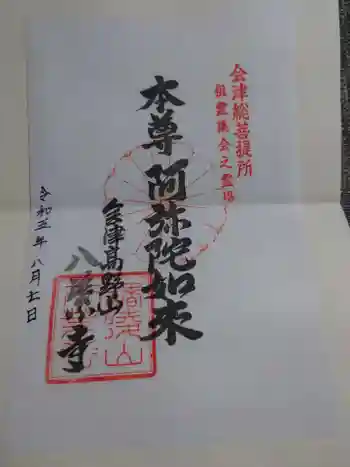 会津総菩提所
祖霊集会之霊場
本尊 阿弥陀如来
会津高野山
八葉寺
令和三年八月七日